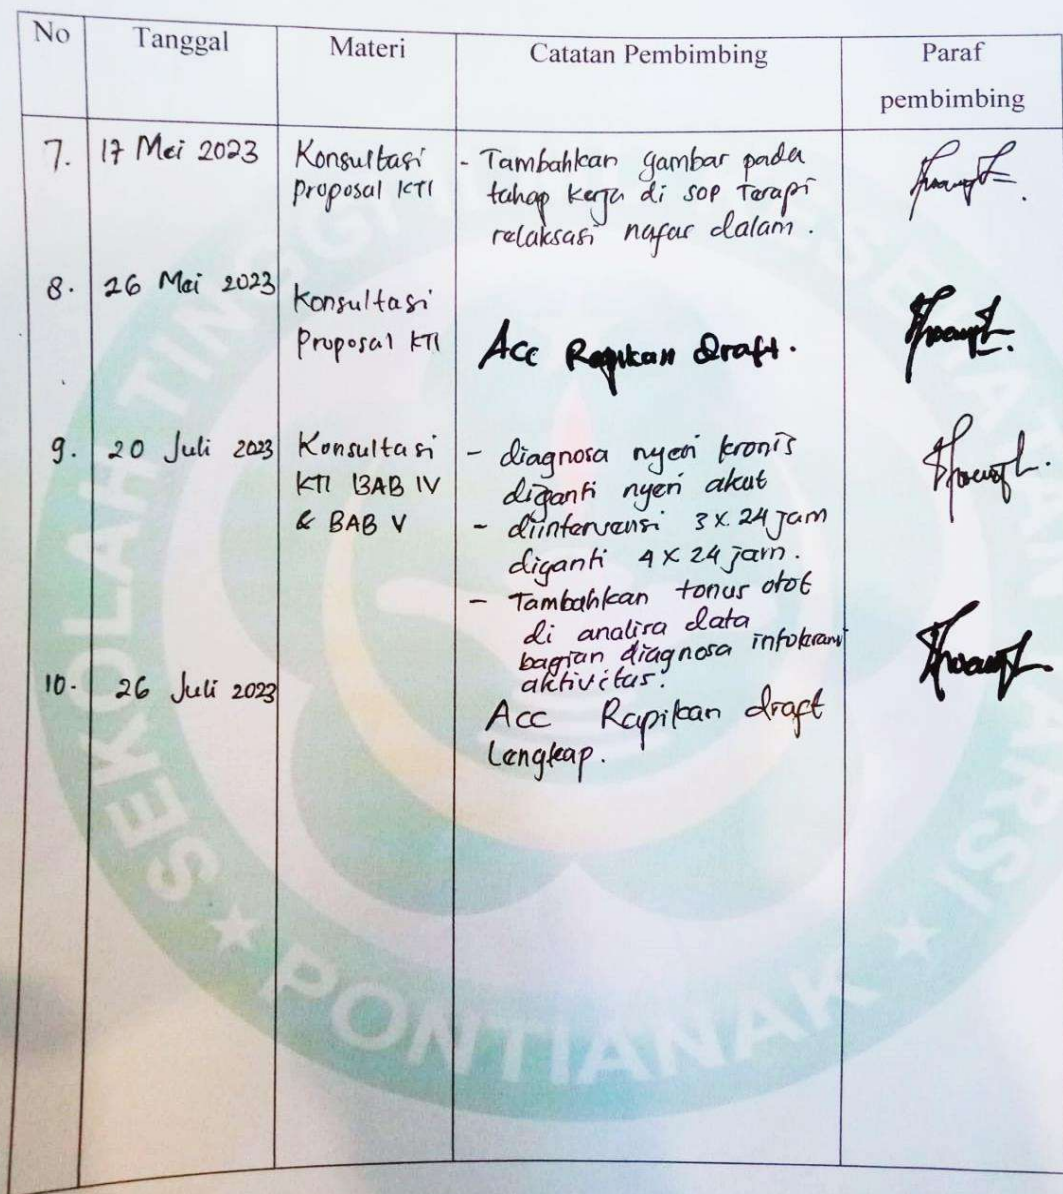 No Tanggal Materi Catatan Pembimbing Paraf
pembimbing
7. 17 Mei 2023 Konsultasi - Tambahkan gambar pada
proposal KTI tahap kerja di SOP Terapi
relaksasi nafas dalam.
8. 26 Mei 2023 Konsultasi
Proposal KTI Acc Rapikan Draft.
9. 20 Juli 2023 Konsultasi - diagnosa nyeri kronis
KTI BAB IV diganti nyeri akut
& BAB V - diintervensi 3 x 24 jam
diganti 4 x 24 jam.
- Tambahkan tonus otot
di analisa data
bagian diagnosa intoleransi
aktivitas.
10. 26 Juli 2023
Acc Rapikan draft
Lengkap.
SEKOLAH TINGGI
PONTIANAK